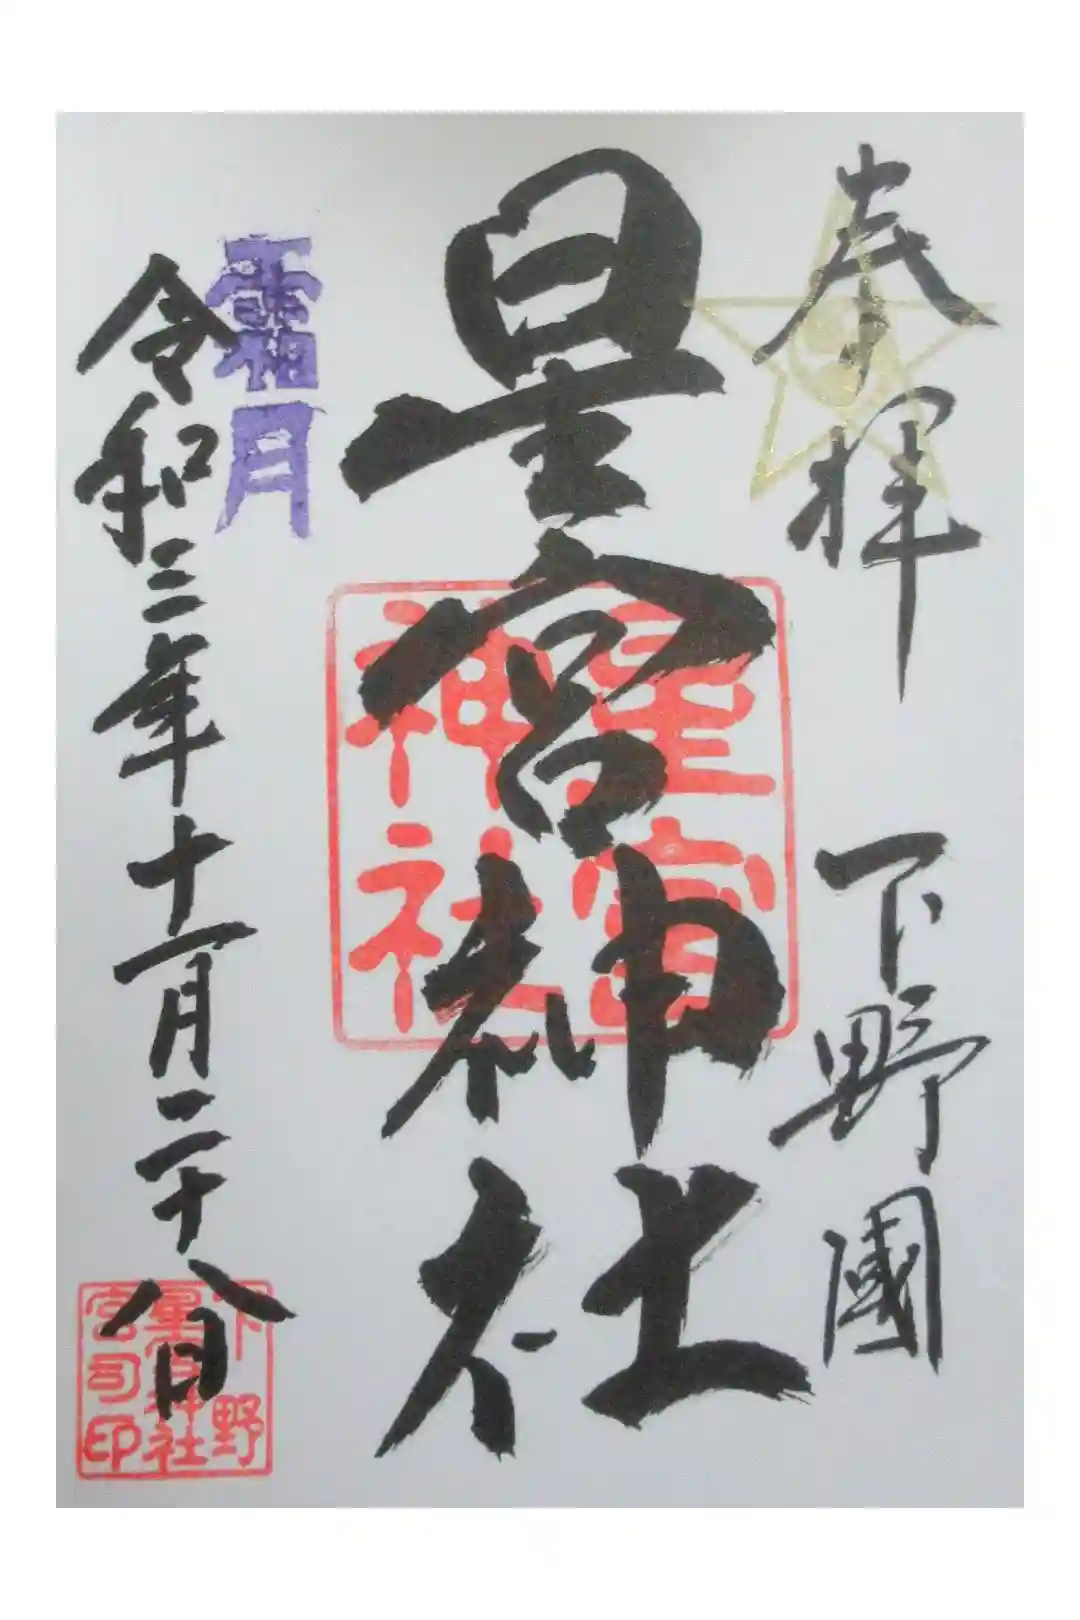 奉拝
下野國
星宮神社
星宮
神社
霜月
令和三年十一月二十八日
下野
星宮神社
宮司印